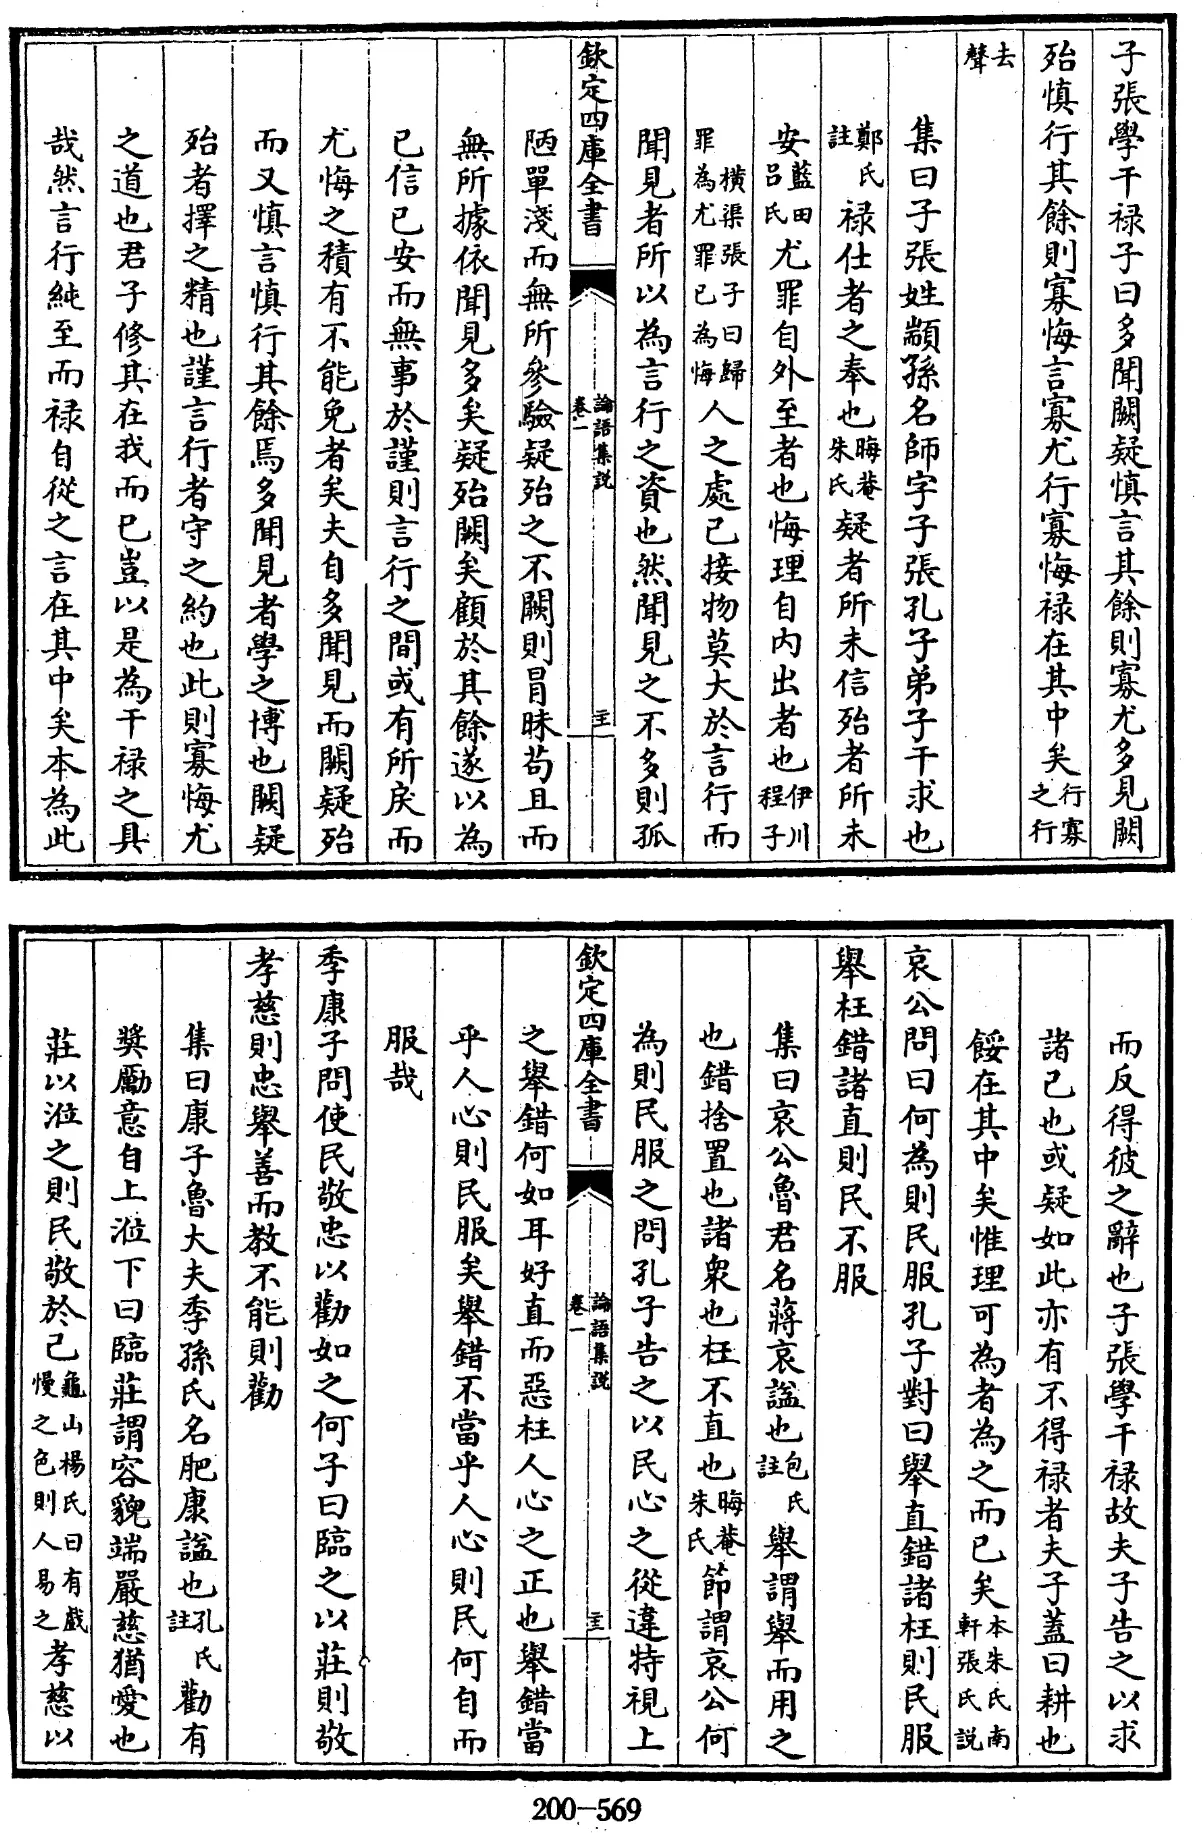 子張學干禄子曰多聞闕疑慎言其餘則寡尤多見闕
殆慎行其餘則寡悔言寡尤行寡悔禄在其中矣行寡之行
去聲
集曰子張姓顓孫名師字子張孔子弟子干求也
鄭氏註禄仕者之奉也晦菴朱氏疑者所未信殆者所未
安藍田呂氏尤罪自外至者也悔理自内出者也伊川程子
横渠張子曰歸罪為尤罪已為悔人之處已接物莫大於言行而
聞見者所以為言行之資也然聞見之不多則孤
欽定四庫全書
論語集説
卷一
陋單淺而無所參驗疑殆之不闕則冒昧苟且而
無所據依聞見多矣疑殆闕矣顧於其餘遂以為
已信已安而無事於謹則言行之間或有所戾而
尤悔之積有不能免者矣夫自多聞見而闕疑殆
而又慎言慎行其餘焉多聞見者學之博也闕疑
殆者擇之精也謹言行者守之約也此則寡悔尤
之道也君子修其在我而已豈以是為干禄之具
哉然言行純至而禄自從之言在其中矣本為此
而反得彼之辭也子張學干禄故夫子告之以求
諸己也或疑如此亦有不得禄者夫子蓋曰耕也
餒在其中矣惟理可為者為之而已矣本朱氏南軒張氏説
哀公問曰何為則民服孔子對曰舉直錯諸枉則民服
舉枉錯諸直則民不服
集曰哀公魯君名蔣哀諡也包氏註舉謂舉而用之
也錯捨置也諸衆也枉不直也晦菴朱氏節謂哀公何
為則民服之問孔子告之以民心之從違特視上
欽定四庫全書
論語集説
卷一
之舉錯何如耳好直而惡枉人心之正也舉錯當
乎人心則民服矣舉錯不當乎人心則民何自而
服哉
季康子問使民敬忠以勸如之何子曰臨之以莊則敬
孝慈則忠舉善而教不能則勸
集曰康子魯大夫季孫氏名肥康諡也孔氏註勸有
獎勵意自上涖下曰臨莊謂容貌端嚴慈猶愛也
莊以涖之則民敬於己龜山楊氏曰有戲慢之色則人易之孝慈以
200-569